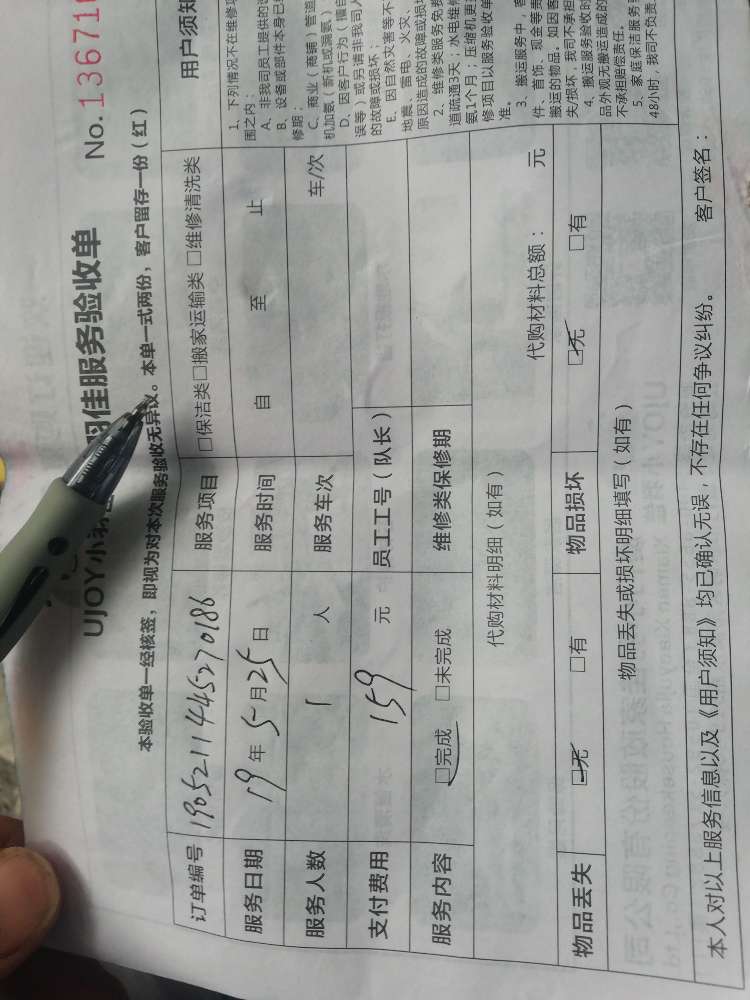 No.136710
UJOY小羽佳服务验收单
本验收单一经核签，即视为对本次服务验收无异议。本单一式两份，客户留存一份（红）
订单编号 1905211445270186 服务项目 □保洁类□搬家运输类□维修清洗类
服务日期 19年5月25日 服务时间 自 至 止
服务人数 1 人 服务车次 车/次
支付费用 159 元 员工工号（队长）
服务内容 □完成 □未完成 维修类保修期
代购材料明细（如有） 代购材料总额： 元
物品丢失 □无 □有 物品损坏 □无 □有
物品丢失或损坏明细填写（如有）
本人对以上服务信息以及《用户须知》均已确认无误，不存在任何争议纠纷。 客户签名：
用户须知
1、下列情况不在维修项
围之内：
A、非我司员工提供的
B、设备或部件本身已
修期；
C、商业（商铺）管道
机加氨（新机或漏氨）
D、因客户行为（擅自
误等）或另请非我司人
的故障或损坏；
E、因自然灾害等不
地震、雷电、火灾
原因造成的故障或损坏
2、维修类服务免费
道疏通3天；水电维修
氨1个月；压缩机更
修项目以服务验收单
准。
3、搬运服务中，客
件、首饰、现金等贵
搬运的物品。如因客
失/损坏，我司不承担
4、搬运服务验收时
品外观无搬运造成的
不承担赔偿责任。
5、家庭保洁服务
48小时，我司不负责